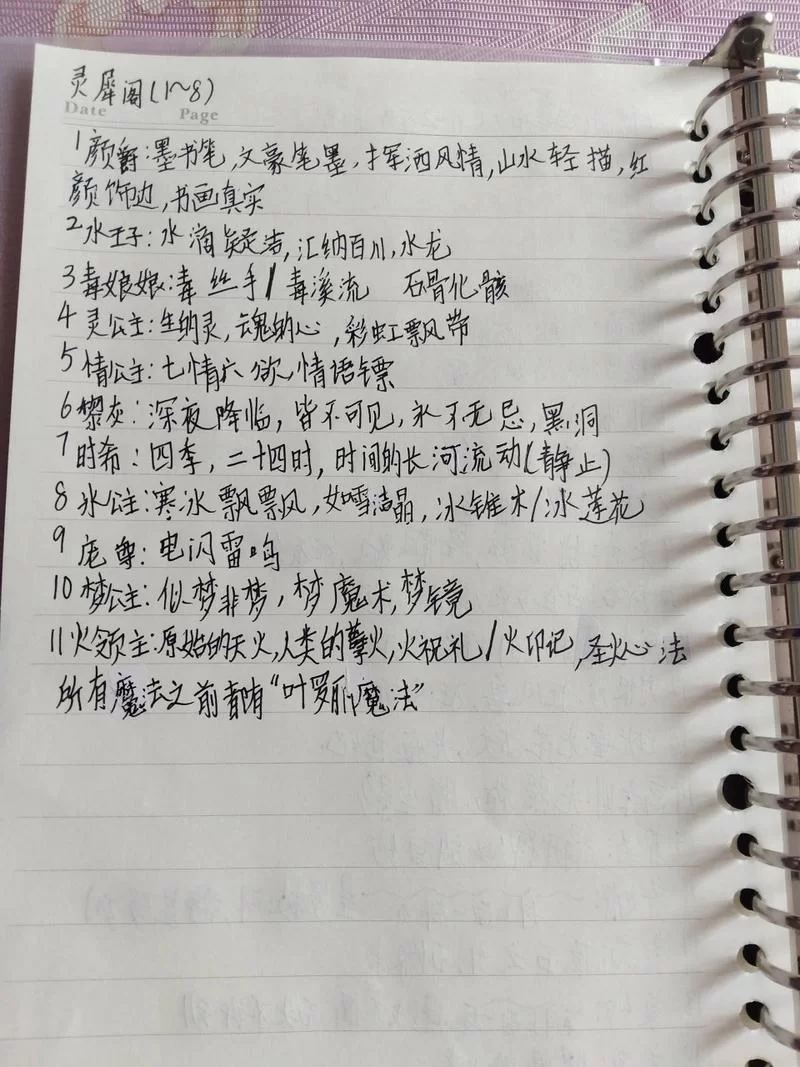 灵犀阁(1~8)
Date Page
1颜爵:墨书笔,文豪笔墨,挥洒风情,山水轻描,红
颜饰边,书画真实
2水王子:水滴凝洁,汇纳百川,水龙
3毒娘娘:毒丝手/毒溪流 石骨化骸
4灵公主:生纳灵,魂的心,彩虹飘带
5情公主:七情六欲,情语镖
6黎灰:深夜降临,皆不可见,永不无忌,黑洞
7时希:四季,二十四时,时间的长河流动(静止)
8冰公主:寒冰飘飘风,如雪洁晶,冰锥术/冰莲花
9庞尊:电闪雷鸣
10梦公主:似梦非梦,梦魔术,梦镜
11火领主:原始的天火,人类的孽火,火祝礼/火印记,圣火心法
所有魔法之前都有“叶罗丽魔法”